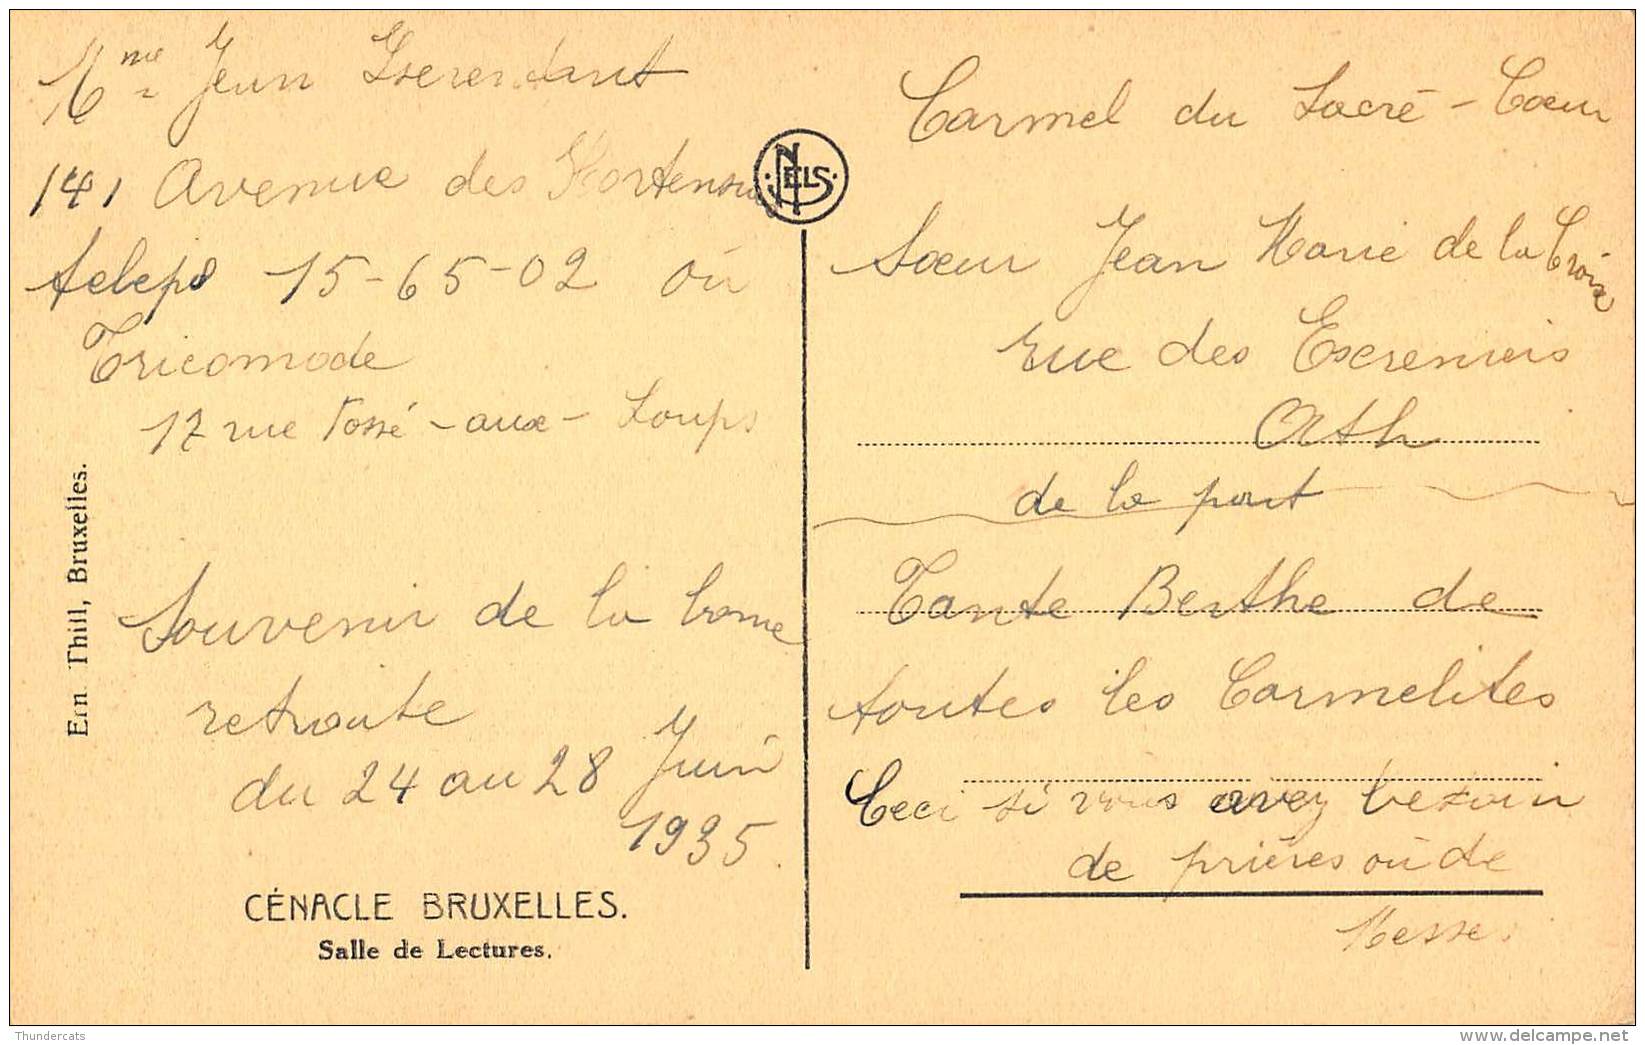 Mme Jean
141 Avenue des Hortensias
télépo 15-65-02 où
Tricomode
17 rue Fossé-aux-Loups
Souvenir de la bonne
retraite
du 24 au 28 Juin
1935.
CÉNACLE BRUXELLES.
Salle de Lectures.
Ern Thill, Bruxelles.
NELS
Carmel du Sacré-Coeur
Soeur Jean Marie de la Croix
rue des Ecreniers
Ath
de la part
Tante Berthe de
toutes les Carmelites
Ceci si vous avez besoin
de prières où de
Messe.
Thundercats
www.delcampe.net